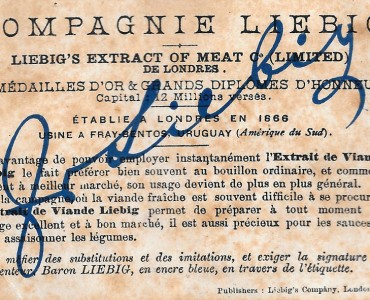 COMPAGNIE LIEBIG
LIEBIG'S EXTRACT OF MEAT Co (LIMITED)
DE LONDRES.
MÉDAILLES D'OR & GRANDS DIPLOMES D'HONNEUR
Capital 12 Millions versés.
ÉTABLIE A LONDRES EN 1866
USINE A FRAY-BENTOS, URUGUAY (Amérique du Sud).
avantage de pouvoir employer instantanément l'Extrait de Vian
big le fait préférer bien souvent au bouillon ordinaire, et comme
et à meilleur marché, son usage devient de plus en plus général.
la campagne, où la viande fraîche est souvent difficile à se procur
trait de Viande Liebig permet de préparer à tout moment
age excellent et à bon marché, il est aussi précieux pour les sauces
assaisonner les légumes.
méfier des substitutions et des imitations, et exiger la signature
enteur Baron LIEBIG, en encre bleue, en travers de l'étiquette.
Publishers : Liebig's Company, London
JvLiebig